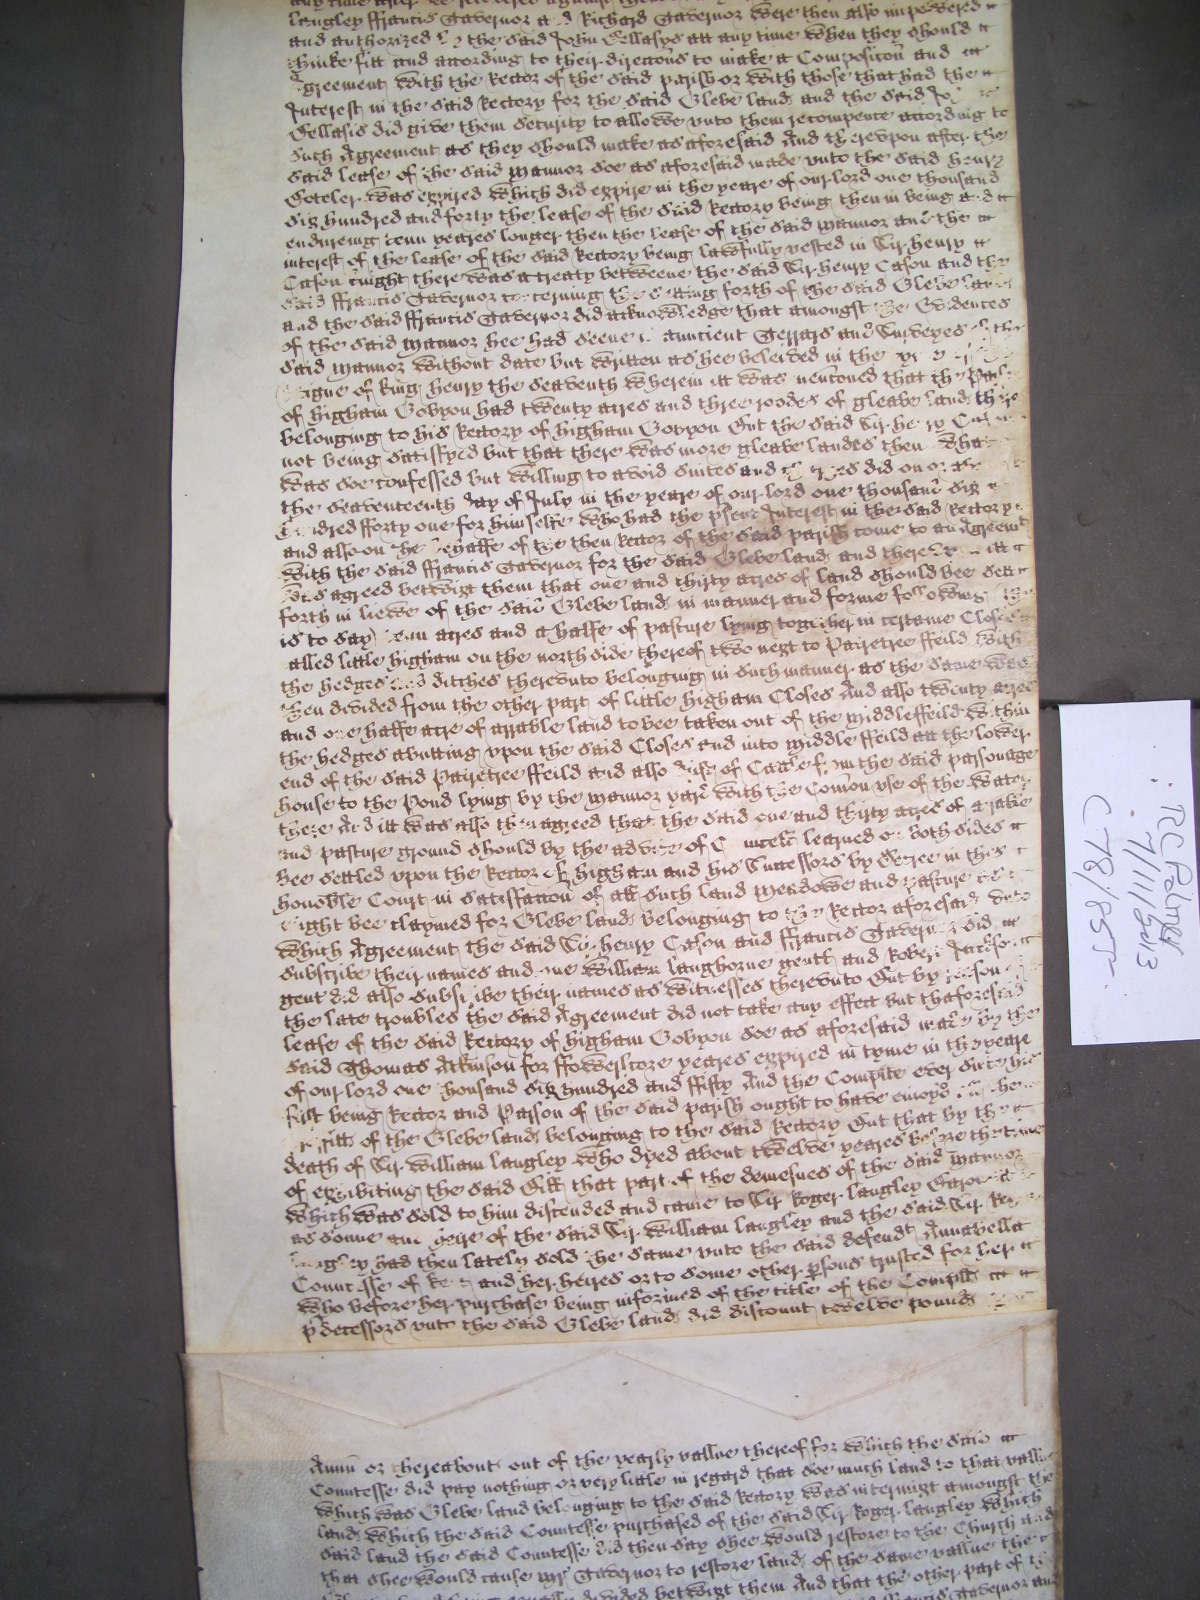 Langley ffrancis Taverner and Richard Taverner were then also impowered
and authorized by the said John Bellasys att any time when they should
thinke fitt and according to their direccons to make a Composicon and
Agreement with the Rector of the said parish or with those that had the
Interest in the said Rectory for the said Glebe land and the said
Bellasis did give them security to allowe unto them recompence according to
such Agreement as they should make as aforesaid And thereupon after the
said lease of the said Mannor soe as aforesaid made unto the said Henry
Boteler was expired which did expire in the yeare of our lord one thousand
six hundred and forty the lease of the said Rectory being then in being and
endureing tenn yeares longer then the lease of the said Mannor and the
interest of the lease of the said Rectory being lawfully vested in Sir Henry
Cason knight there was a treaty betweene the said Sir Henry Cason and the
said ffrancis Taverner concerning the setting forth of the said Glebe land
and the said ffrancis Taverner did acknowledge that amongst the Evidences
of the said Mannor hee had seene auncient Terrars and Surveyes of the
said Mannor without date but written as hee beleived in the
Reigne of King Henry the Seaventh wherein itt was menconed that the
of Higham Gobyon had twenty acres and three roodes of gleabe land there
belonging to his Rectory of Higham Gobyon But the said Sir Henry Cason
not being satisfyed but that there was more gleabe landes then what
was soe confessed but willing to avoid suites and did on or
the Seaventeenth day of July in the yeare of our lord one thousand six
hundred fforty one for himselfe who had the psent Interest in the said Rectory
and alsoe on the behalfe of the then Rector of the said parish come to an Agreemt
with the said ffrancis Taverner for the said Glebe land and thereupon itt
was agreed betwixt them that one and thirty acres of land should bee sett
forth in liewe of the said Glebe land in manner and forme following
is to say tenn acres and a halfe of pasture lying together in certaine Closes
called little Higham on the north side thereof two next to Pairetree ffeild with
the hedges and ditches thereunto belonging in such manner as the same was
then devided from the other part of little Higham Closes And also twenty acres
and one halfe acre of arrable land to bee taken out of the Middleffeild within
the hedges abutting upon the said Closes and into Middle ffeild att the lower
end of the said Pairetree ffeild and also of from the said parsonage
house to the Pond lying by the Mannor yard with the Comon use of the water
there And itt was also then agreed that the said one and thirty acres of arrable
and pasture ground should by the advice of learned on both sides
bee settled upon the Rector of Higham and his Successors by decree in this
honoble Court in satisfaction of all such land meadowe and pasture
might bee claymed for Glebe land belonging to the Rector aforesaid unto
which Agreement the said Sir Henry Cason and ffrancis Taverner did
subscribe their names and one William Langhorne gentl and Robert Jackson
gent did also subscribe their names as witnesses thereunto But by reason
the late troubles the said Agreement did not take any effect But thaforesaid
lease of the said Rectory of Higham Gobyon soe as aforesaid made by the
said Thomas Atkinson for ffowerscore yeares expired in tyme in the yeare
of our lord one thousand six hundred and ffifty And the Complte ever since his
first being Rector and Parson of the said parish ought to have enioyd the
profitts of the Glebe land belonging to the said Rectory But that by the
death of Sir William Langley who dyed about twelve yeares before the time
of exhibiting the said Bill that part of the demesnes of the said Mannor
which was sold to him discended and came to Sir Roger Langley
as sonne and heire of the said Sir William Langley and the said Sir
Langley had then lately sold the same unto the said defendt Annabella
Countesse of Kent and her heires or to some other psons trusted for her
who before her purchase being informed of the title of the Complt
pdecessors unto the said Glebe land did discount twelve pound
Annu or thereabout out of the yearly vallue thereof for which the said
Countesse did pay nothing or very little in regard that soe much land to that vallue
which was Glebe land belonging to the said Rectory was intermixt amongst the
land which the said Countesse purchased of the said Sir Roger Langley which
said land the said Countesse did then say shee would restore to the Church and
that shee would cause Mr Taverner to restore land of the same vallue
devided betwixt them And that the other part of
RC Palmer
7/11/2013
C78/855